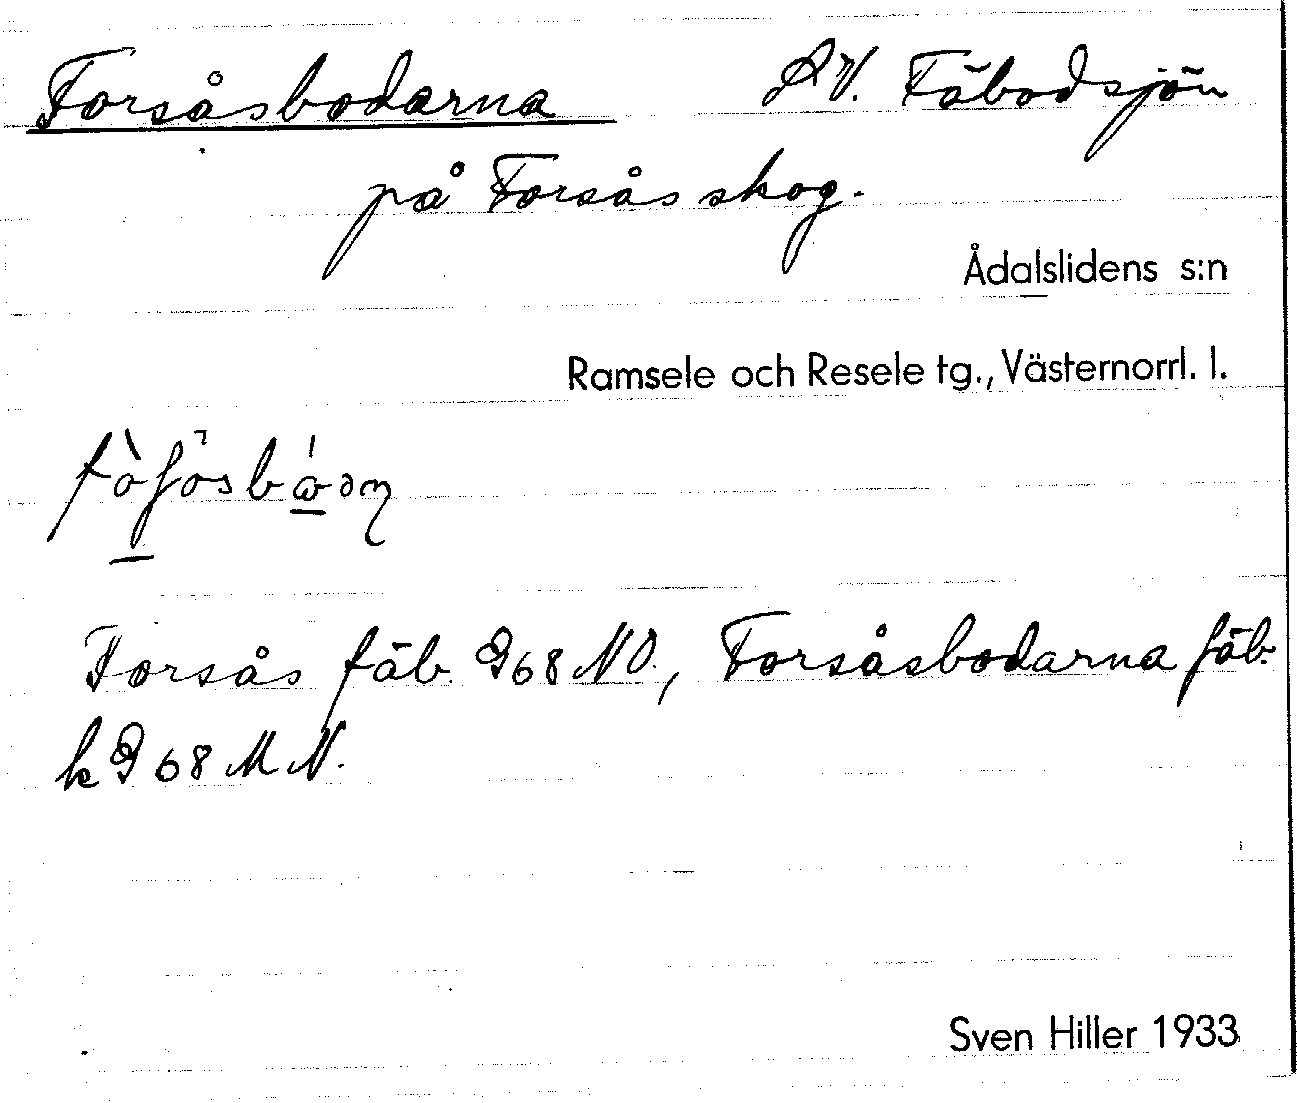 Forsåsbodarna SV. Fäbodsjön
på Forsås skog.
Ådalslidens s:n
Ramsele och Resele tg., Västernorrl. l.
Forsås fäb. G68 NO., Forsåsbodarna fäb.
k G 68 M N.
Sven Hiller 1933